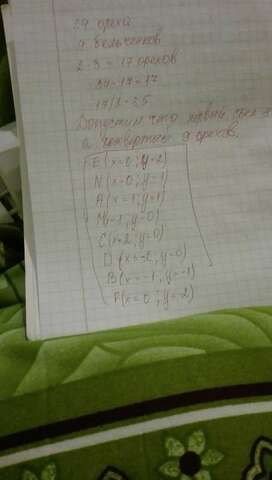 34 ореха
4 бельчонков
2-3 = 17 орехов
34-17=17
17/3=
Допустим, что первый съел
а четвертый 9 орехов.
E(x=0; y=2)
N(x=0; y=1)
A(x=1; y=1)
y=0)
C(x=2; y=0)
D(x=-2; y=0)
B(x=-1; y=-1)
F(x=0; y=-2)